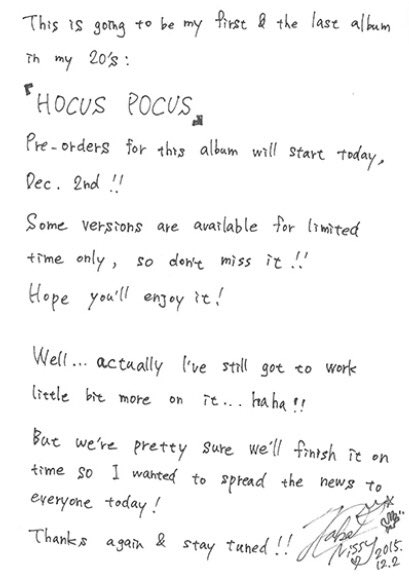 This is going to be my first & the last album
in my 20's:
『HOCUS POCUS』
Pre-orders for this album will start today,
Dec. 2nd !!
Some versions are available for limited
time only, so don't miss it !!
Hope you'll enjoy it!
Well... actually I've still got to work
little bit more on it... haha !!
But we're pretty sure we'll finish it on
time so I wanted to spread the news to
everyone today!
Thanks again & stay tuned !!
Nissy
2015.
12.2